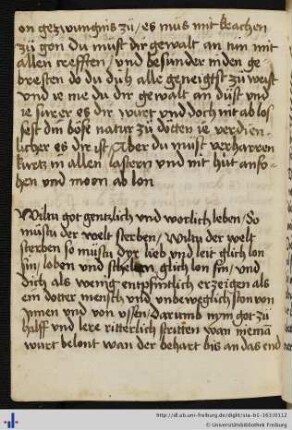 on gezwungnis zů / es můs mit krachen
zů gon du můst dir gewalt an tun mit
allen trefften / und besunder in den ge
bresten do du dich alle geneigtst zů weist
und ie me du dir gewalt an důst und
ie surer es dir würt und doch nit ab los
sest din böse natur zů dotten ie verdien
licher es dir ist / Aber du můst verharren
kurtz in allen lastern und nit hüt anfo
hen und morn ab lon
Wiltu got gentzlich und worlich leben / So
můstu der welt sterben / Wiltu der welt
sterben so můstu dir lieb und leit glich lon
sin / loben und schelten glich lon sin / und
dich als wenig entpfintlich erzeigen als
ein dotter mensch und unbeweglich ston von
jnnen und von ussen / darumb nym got zů
hilff und lere ritterlich stritten wan niemā
würt belont wan der behart bis an das end
http://dl.ub.uni-freiburg.de/diglit/
© Universitätsbibliothek Freiburg